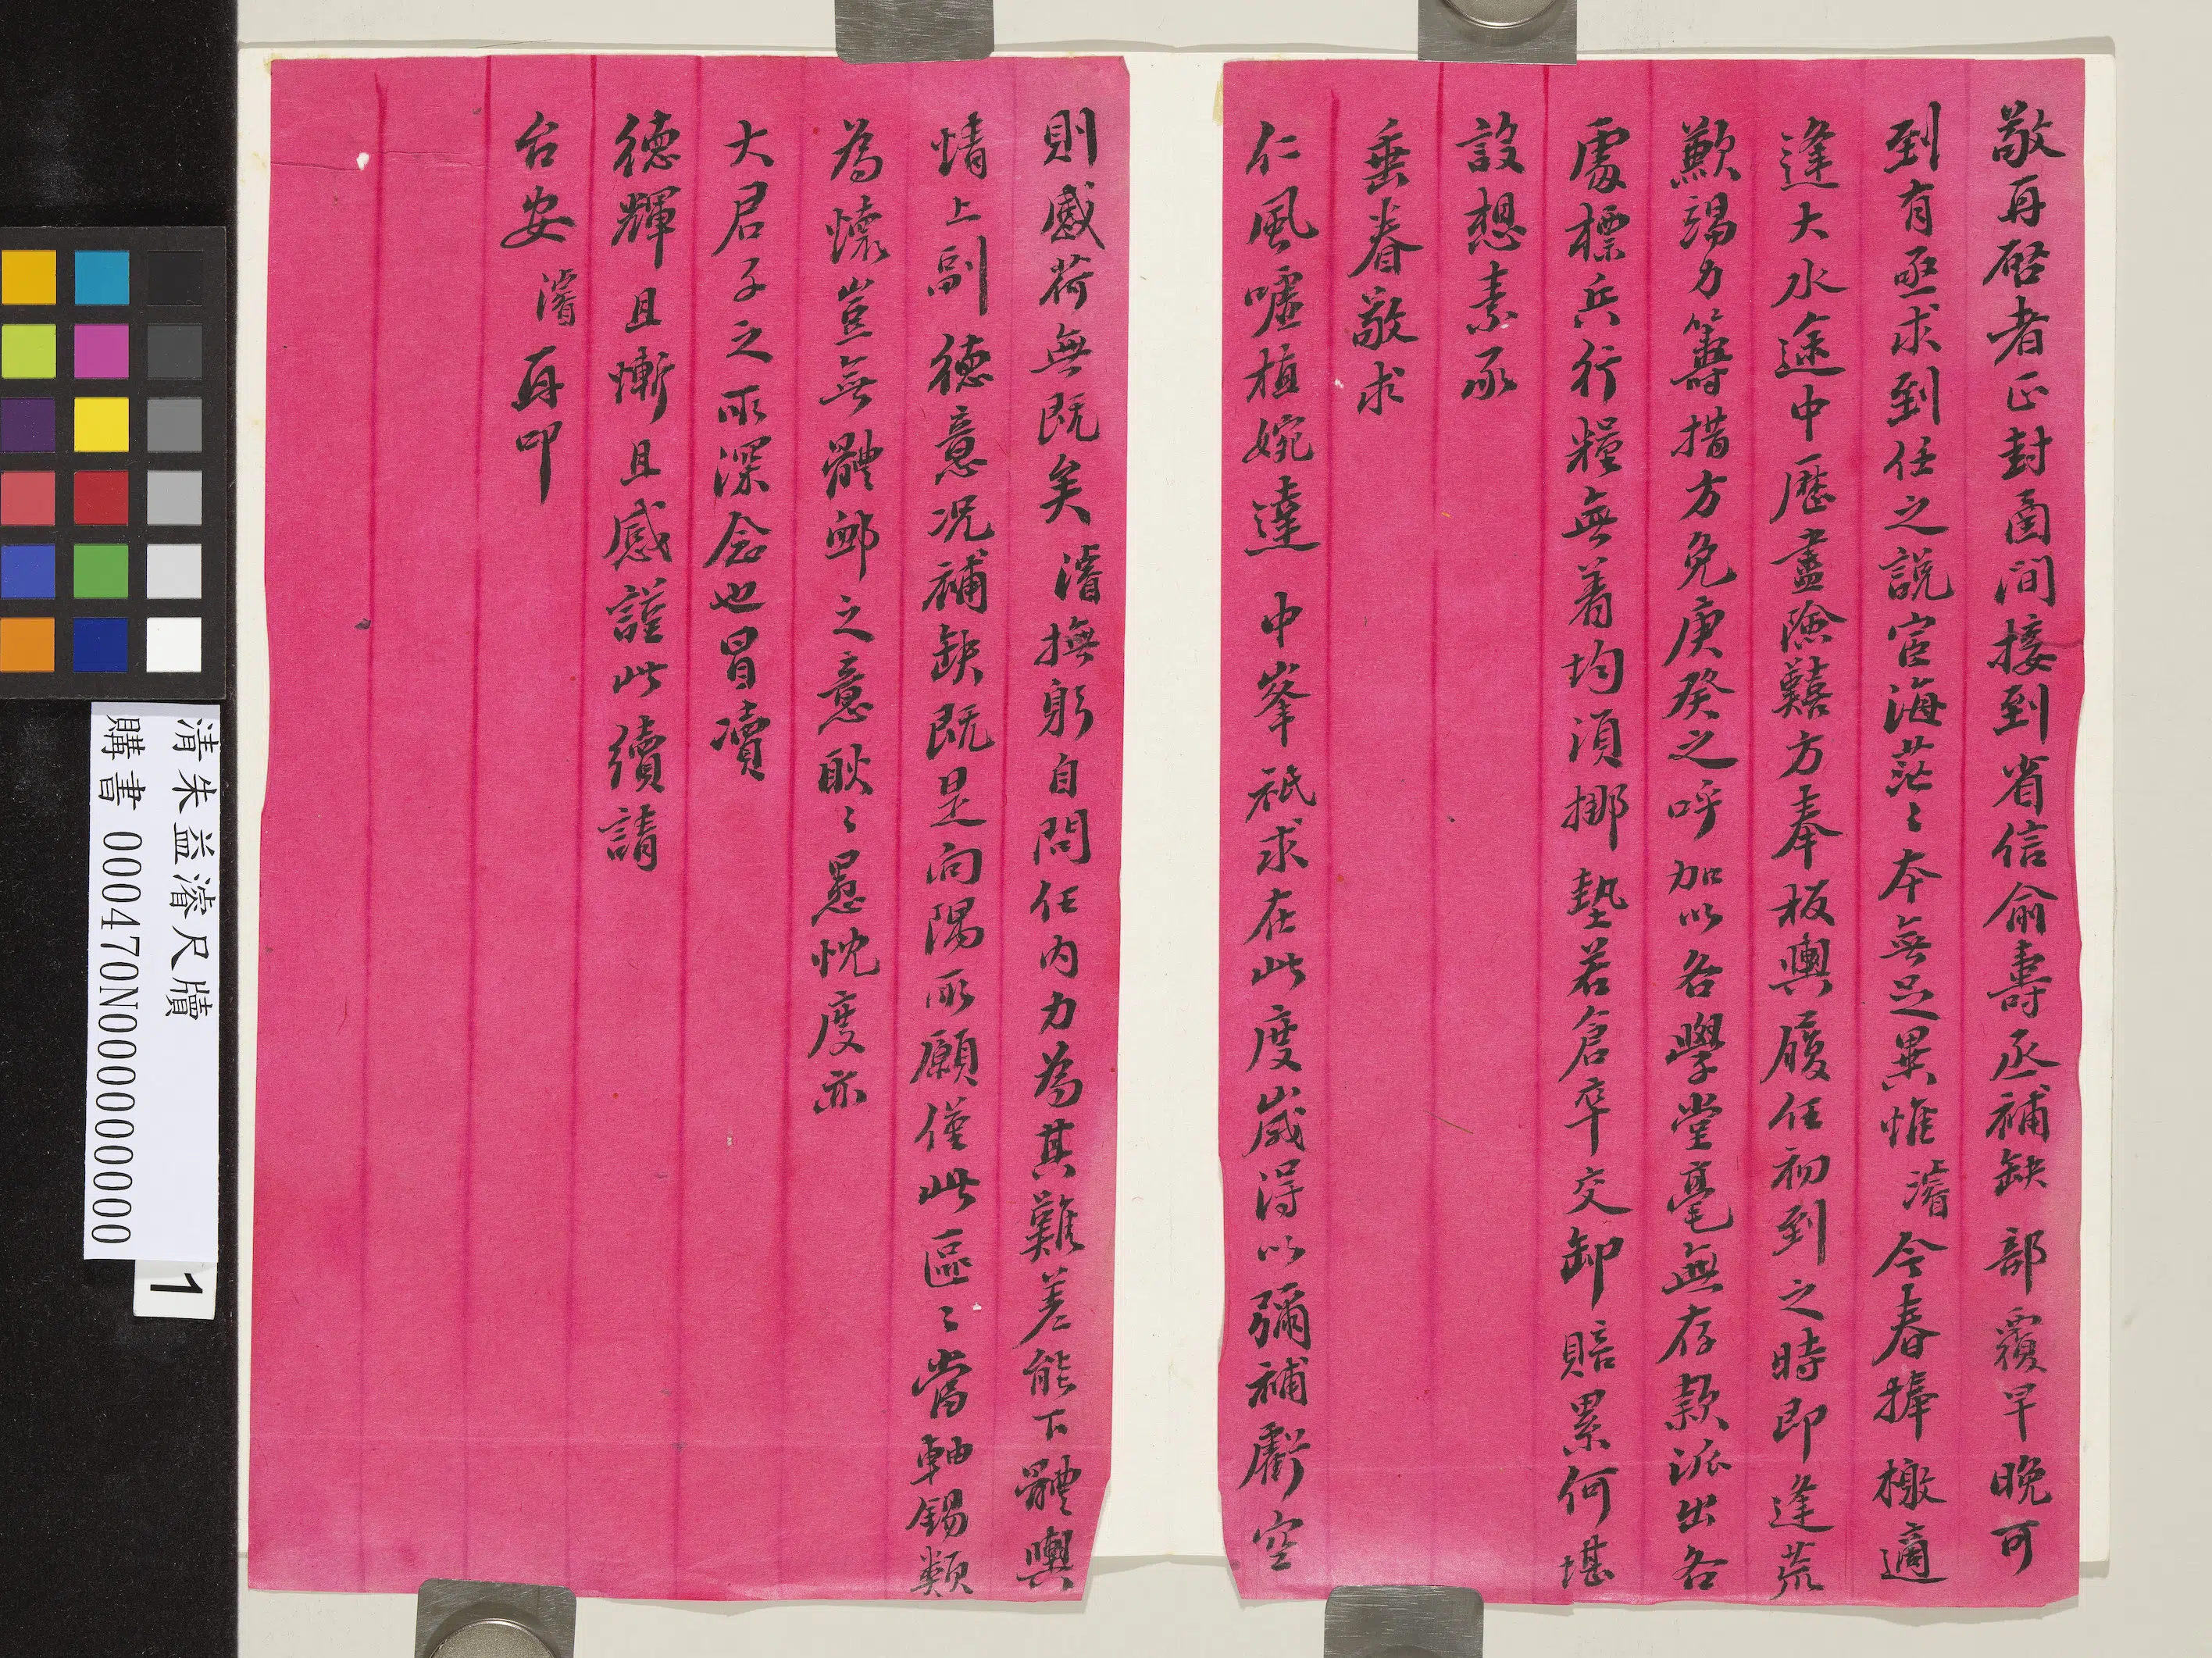 敬再啓者正封函間接到省信俞壽丞補缺 部覆早晚可
到有亟求到任之說宦海茫〻本無足異惟濬今春捧檄適
逢大水途中歷盡險囏方奉板輿履任初到之時即逢荒
歉竭力籌措方免庚癸之呼加以各學堂毫無存款派出各
處標兵行糧無着均須挪墊若倉卒交卸賠累何堪
設想素承
垂眷敬求
仁風噓植婉達 中峯祇求在此度歲得以彌補虧空
則感荷無既矣濬撫躬自問任內力為其難差能下體輿
情上副 德意況補缺既是向隅所願僅此區〻當軸錫類
為懷豈無體卹之意耿〻愚忱度亦
大君子之所深念也冒瀆
德輝且慚且感謹此續請
台安 濬再叩
清朱益濬尺牘
購書 000470N000000000
1